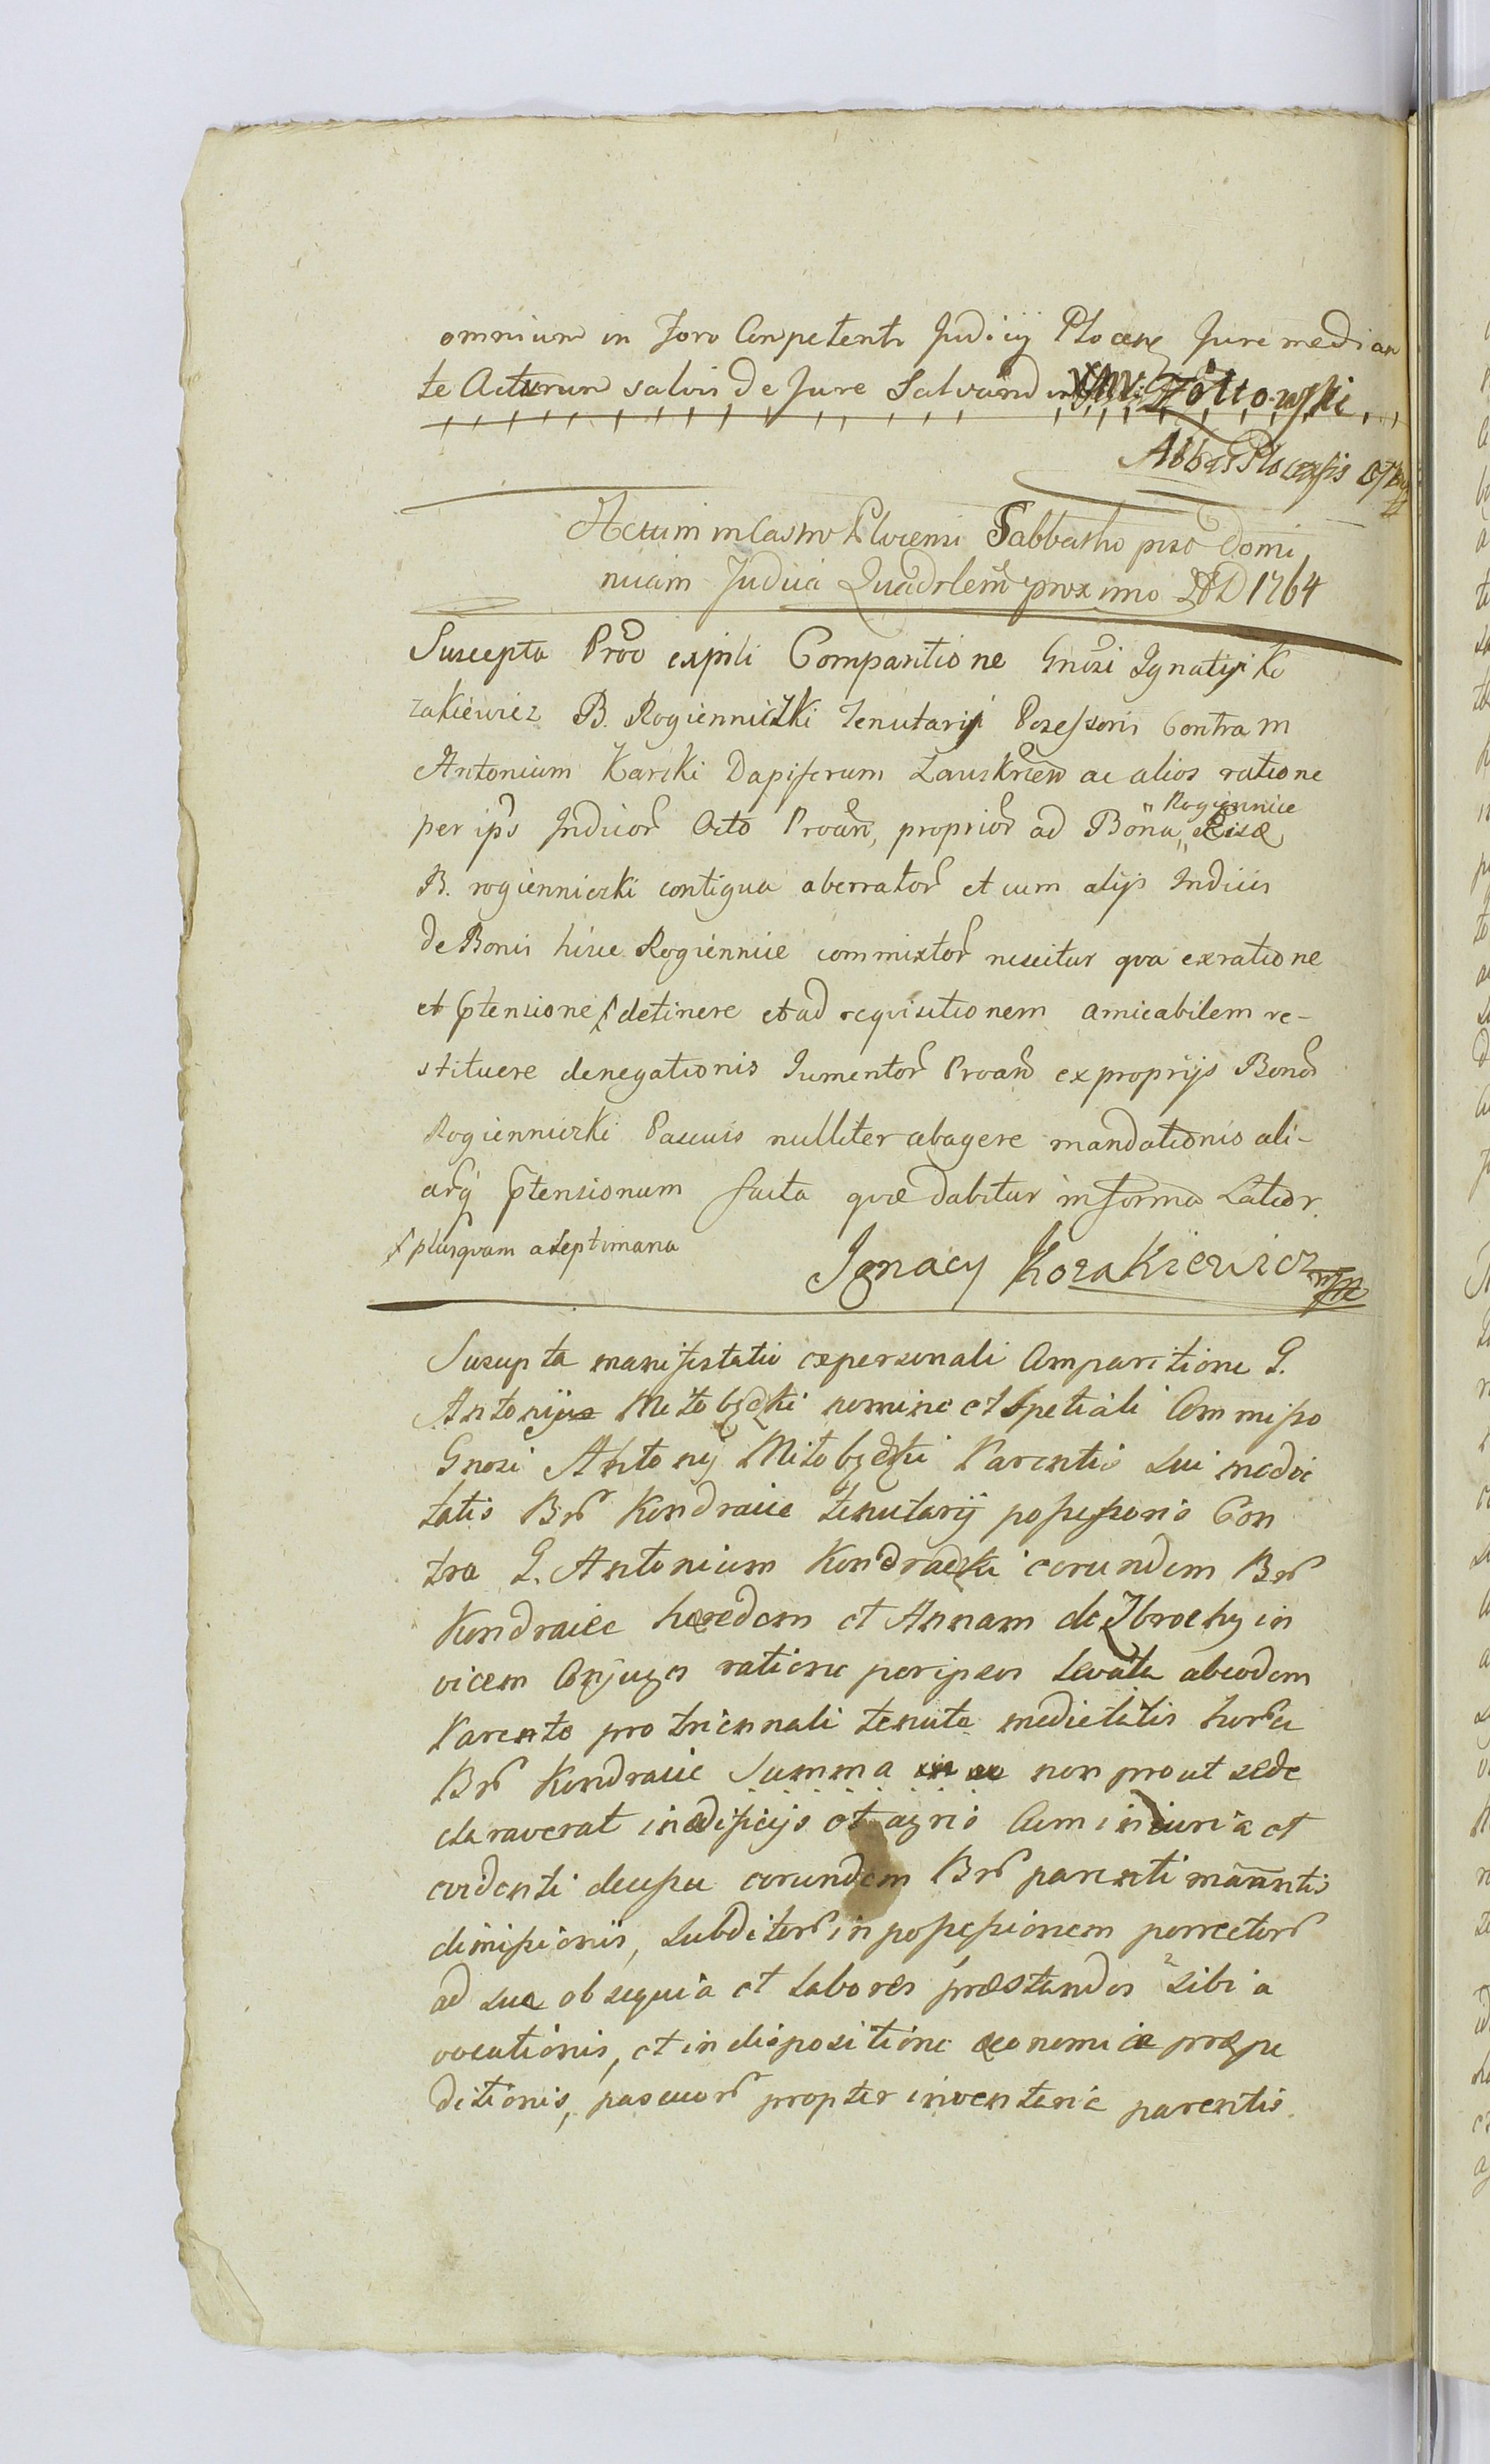 omnium in Foro Conpetenti Judicij Plocens Jure median
te Acturum salvis de Jure Salvand Żółtowski
Abbas Plocensis
Actum in Castro Plocensi Sabbatho pso Domi
nicam Judica Quadrlem proximo AD 1764
Suscepta Pròo exprsli Comparitione Gnosi Ignatij Ko
zakiewicz B. Rogienniczki Tenutarij Posessoris Contra M
Antonium Karski Dapiferum Zauskrien ac alios ratione
per ips Induor Octo Proan, proprior ad Bona " Rogiennice
B. rogienniczki contigua aberrator et cum alijs Induis
de Bonis hisce Rogiennice commixtor nescitur qva ex ratione
et Ptensione ƒ detinere et ad reqvisitionem amicabilem re-
stituere denegationis Jumentor Proan ex proprijs Bonor
Rogienniczki Pascuis nulliter abagere mandationis ali-
arq Ptensionum facta qvæ dabitur in forma Latior.
ƒ plusqvam a septimana
Ignacy Kozakiewicz mp
Suscepta manifestatio ex personali Comparitione G.
Antonij Miłobędzki nomine et Spetiali Commisso
Gnosi Antonij Miłobędzki Parentis sui medie
tatis Br Kondraiec tenutarij possessoris Con
tra G. Antonium Kondradzki eorundem Br
Kondraiec hæredem et Annam de Zbrochy in
vicem Conjuges ratione per ipsos levata ab eodem
Parente pro triennali tenuta medietatis hor
Br Kondraiec Summa non prout se de
claraverat in ædificijs et agris Cum injuria et
evidenti decepu eorundem Br parenti manntis
dimissionis, subditor in possessionem porrector
ad sua obsequia et labores præstandos sibi a
vocationis, et in dispositione œconomica præpe
ditionis, pascuor propter inventaria parentis